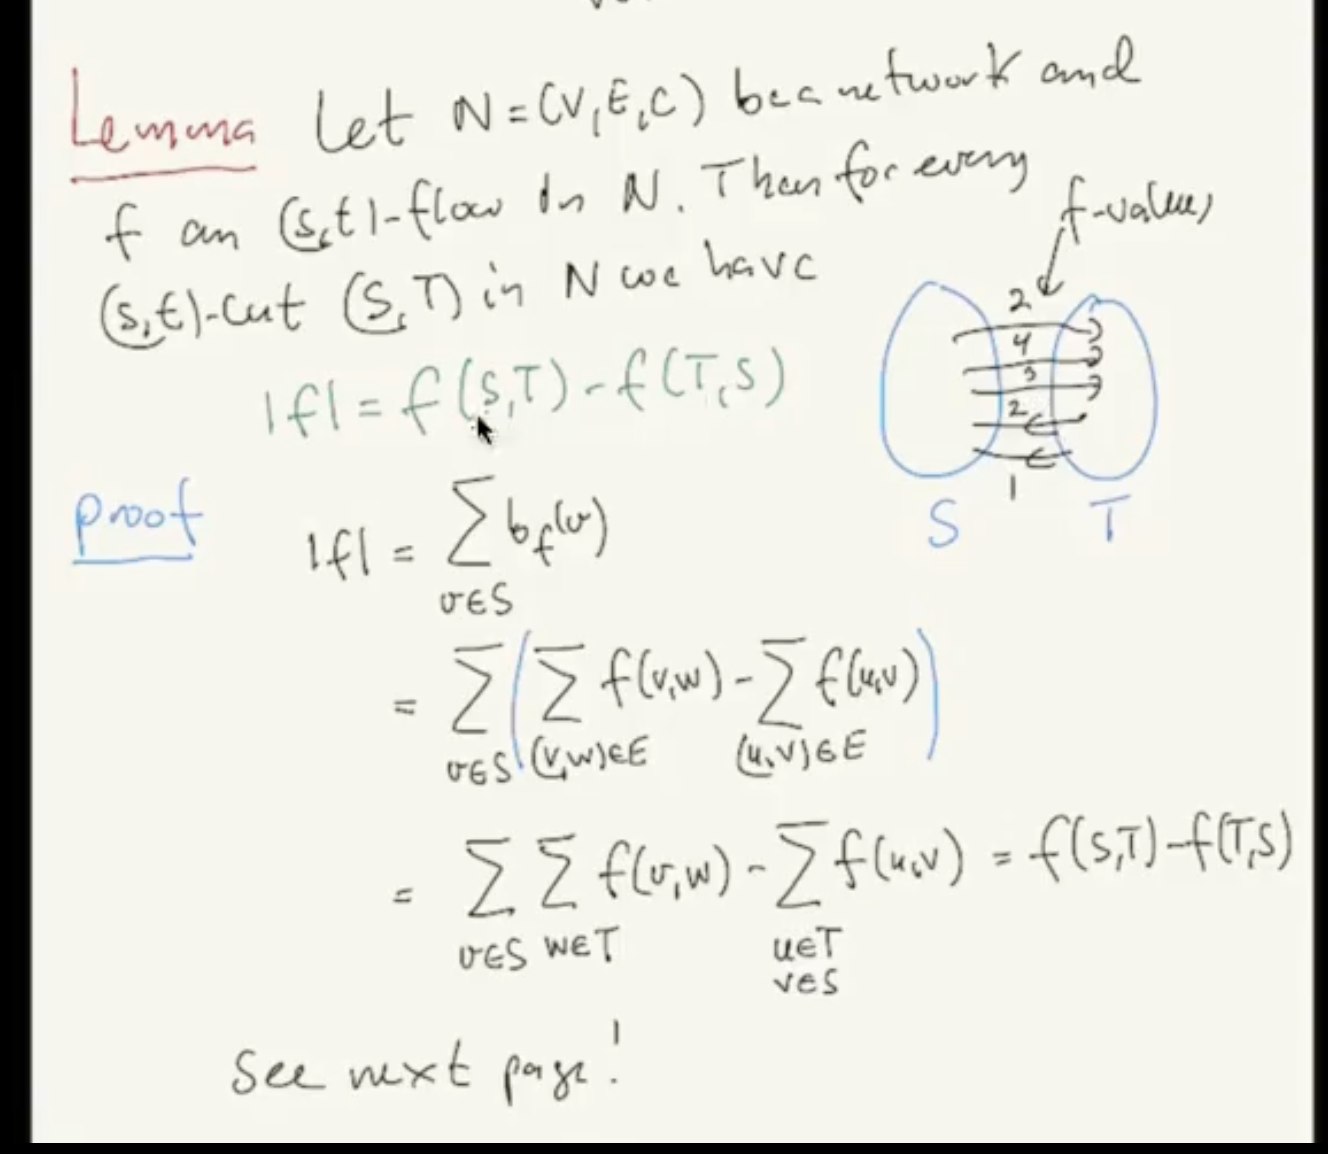 Lemma Let N = (V, E, C) be a network and
f an (s,t)-flow in N. Then for every
(s,t)-cut (S,T) in N we have
|f| = f(S,T) - f(T,S)
f-values
2
4
3
2
1
S T
Proof |f| = ∑ b_f(v)
v∈S
= ∑ ( ∑ f(v,w) - ∑ f(u,v) )
v∈S (v,w)∈E (u,v)∈E
= ∑ ∑ f(v,w) - ∑ f(u,v) = f(S,T) - f(T,S)
v∈S w∈T u∈T
v∈S
See next page!